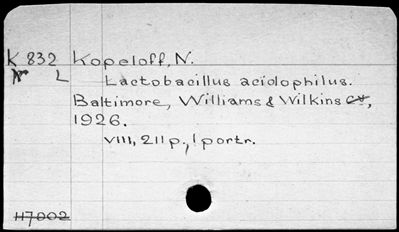 K 832 Kopeloff, N.
L Lactobacillus acidolophilus.
Baltimore, Williams & Wilkins Co,
1926.
VIII, 211 p., 1 portr.
117002